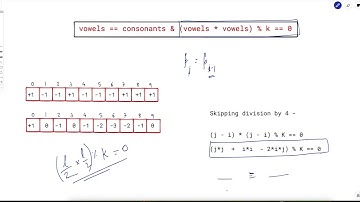 vowels == consonants & (vowels * vowels) % k == 0
0 1 2 3 4 5 6 7 8 9
+1 -1 -1 +1 -1 -1 -1 +1 +1 +1
0 1 2 3 4 5 6 7 8 9
+1 0 -1 0 -1 -2 -3 -2 -1 0
(l/2 × l/2) % K = 0
Skipping division by 4 -
(j - i) * (j - i) % K == 0
(j*j + i*i - 2*i*j) % K == 0
=